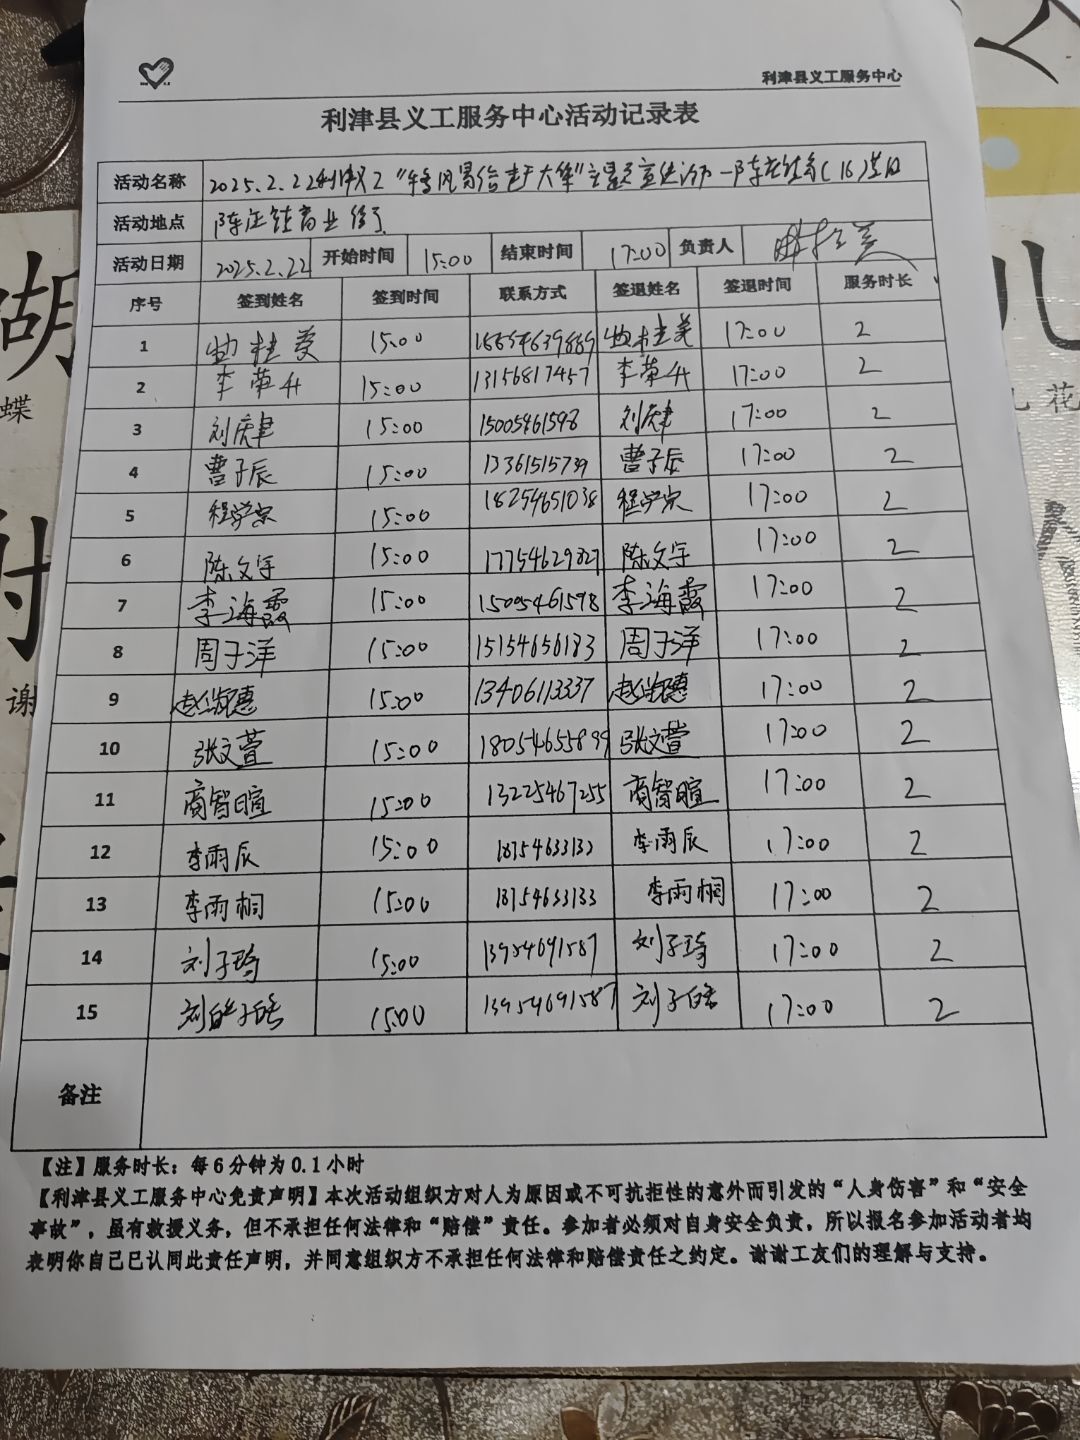 利津县义工服务中心
利津县义工服务中心活动记录表
活动名称 2025.2.22利津义工"
活动地点 陈庄镇商业街
活动日期 2025.2.22 开始时间 15:00 结束时间 17:00 负责人
序号 签到姓名 签到时间 联系方式 签退姓名 签退时间 服务时长
1 桂英 15:00 18854639889 桂英 17:00 2
2 李荣升 15:00 13156817457 李荣升 17:00 2
3 刘庆津 15:00 15005461598 刘庆津 17:00 2
4 曹子辰 15:00 13361515739 曹子辰 17:00 2
5 程学宗 15:00 18254651038 程学宗 17:00 2
6 陈文宇 15:00 17754629827 陈文宇 17:00 2
7 李海霞 15:00 15005461598 李海霞 17:00 2
8 周子洋 15:00 15154656183 周子洋 17:00 2
9 赵懿德 15:00 13406113337 赵懿德 17:00 2
10 张文萱 15:00 18054655899 张文萱 17:00 2
11 商智暄 15:00 13225467255 商智暄 17:00 2
12 李雨辰 15:00 18754633133 李雨辰 17:00 2
13 李雨桐 15:00 18754633133 李雨桐 17:00 2
14 刘子琦 15:00 13954691587 刘子琦 17:00 2
15 刘子皓 15:00 13954691587 刘子皓 17:00 2
备注
【注】服务时长：每6分钟为0.1小时
【利津县义工服务中心免责声明】本次活动组织方对人为原因或不可抗拒性的意外而引发的“人身伤害”和“安全
事故”，虽有救援义务，但不承担任何法律和“赔偿”责任。参加者必须对自身安全负责，所以报名参加活动者均
表明你自己已认同此责任声明，并同意组织方不承担任何法律和赔偿责任之约定。谢谢工友们的理解与支持。
胡
蝶
谢
花